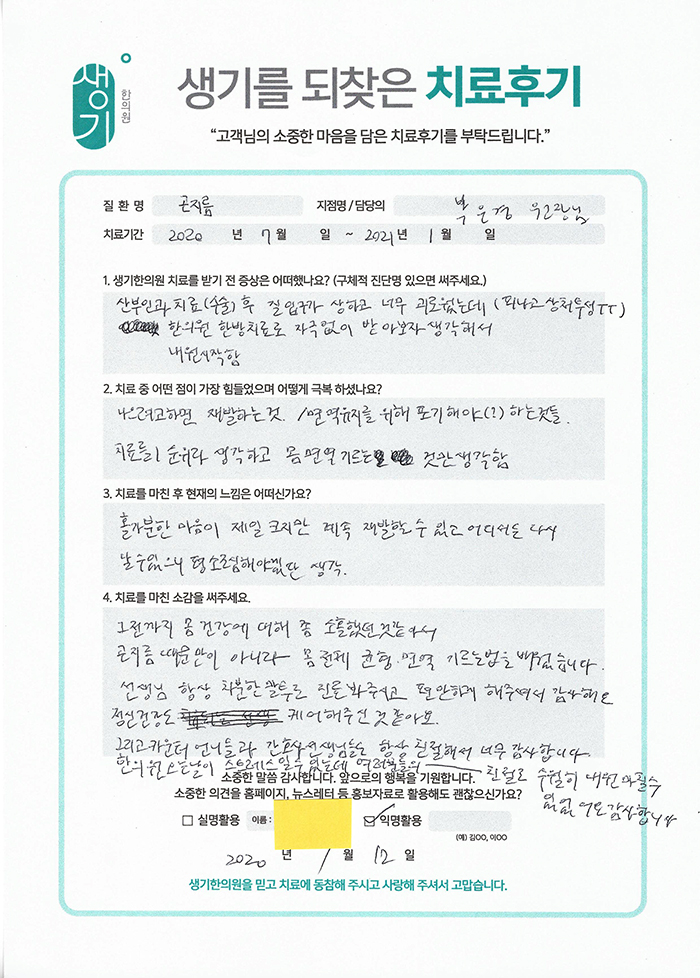 생기
한의원
생기를 되찾은 치료후기
“고객님의 소중한 마음을 담은 치료후기를 부탁드립니다.”
질 환 명 곤지름 지점명 / 담당의 박은경 원장님
치료기간 2020 년 7 월 일 ~ 2021 년 1 월 일
1. 생기한의원 치료를 받기 전 증상은 어떠했나요? (구체적 진단명 있으면 써주세요.)
산부인과 치료(수술) 후 질입구가 상하고 너무 괴로웠는데 (피나고 상처투성TT)
한의원 한방치료로 자극없이 받아보자 생각해서
내원시작함
2. 치료 중 어떤 점이 가장 힘들었으며 어떻게 극복 하셨나요?
나으려고하면 재발하는것. /면역유지를 위해 포기해야(?) 하는것들.
치료를 1순위라 생각하고 몸 면역 기르는 것만 생각함
3. 치료를 마친 후 현재의 느낌은 어떠신가요?
홀가분한 마음이 제일 크지만 계속 재발할 수 있고 어디서든 다시
날 수 있으니 평소 조심해야겠단 생각.
4. 치료를 마친 소감을 써주세요.
그전까지 몸 건강에 대해 좀 소홀했던것같아서
곤지름 때문만이 아니라 몸 전체 균형·면역 기르는법을 배웠습니다.
선생님 항상 차분한 말투로 진료봐주시고 편안하게 해주셔서 감사해요
정신건강도 케어해주신 것 같아요.
그리고 카운터 언니들과 간호사선생님들도 항상 친절해서 너무 감사합니다.
한의원 오는날이 스트레스일수 있는데 여러분들의 친절로 수월히 내원
감사합니다
소중한 말씀 감사합니다. 앞으로의 행복을 기원합니다.
소중한 의견을 홈페이지, 뉴스레터 등 홍보자료로 활용해도 괜찮으신가요?
실명활용 이름 : 익명활용
(예) 김OO, 이OO
2020 년 1 월 12 일
생기한의원을 믿고 치료에 동참해 주시고 사랑해 주셔서 고맙습니다.